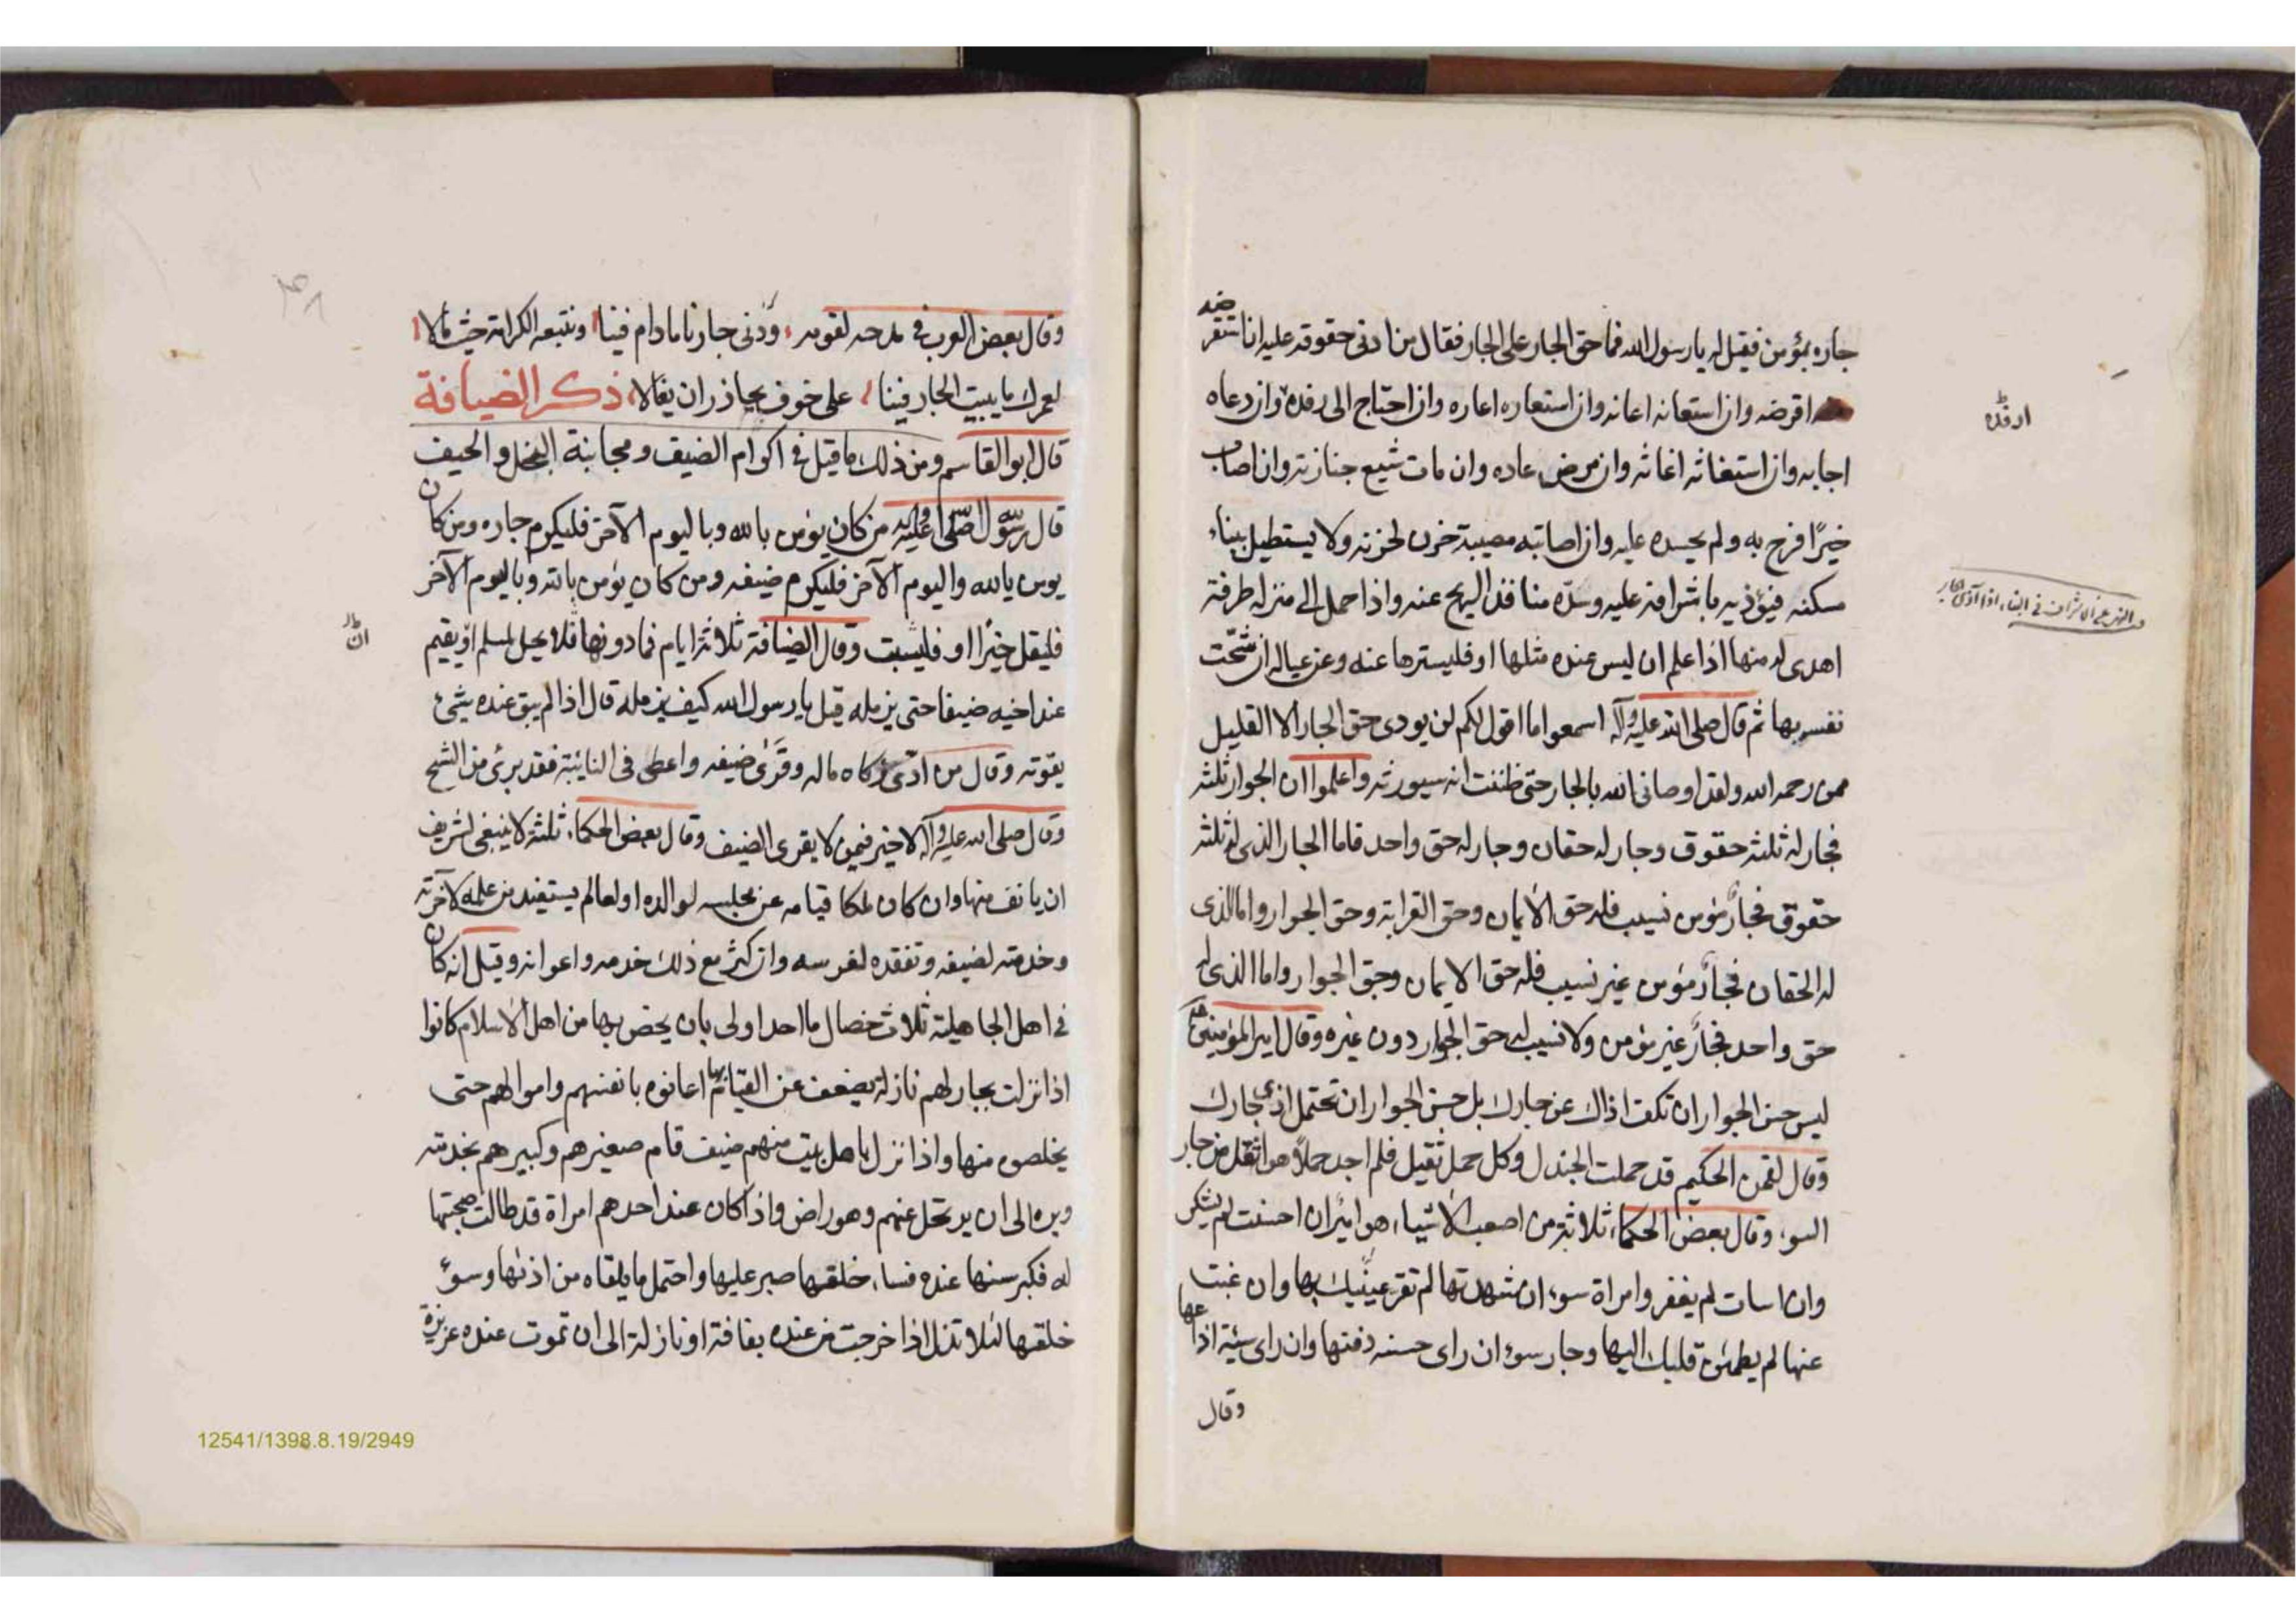 جاره بمؤمن فقيل له يا رسول الله فما حق الجار على الجار فقال من ادنى حقوقه عليه ان استقرضه
اقرضه وان استعانه اعانه وان استعاره اعاره وان احتاج الى رفده وان دعاه
ارفده
اجابه وان استغاثه اغاثه وان مرض عاده وان مات شيع جنازته وان اصاب
خيرًا فرح به ولم يحسده عليه وان اصابته مصيبة حزن لحزنه ولا يستطيل ببناء
مسكنه فيؤذيه باشرافه عليه وسدّه منافذ الريح عنه واذا حمل الى منزله طرفة
اهدى له منها اذا علم ان ليس عنده مثلها او فليسترها عنه وعن عياله ان شحّت
نفسه بها ثم قال صلى الله عليه وآله اسمعوا ما اقول لكم لن يودى حق الجار الا القليل
ممن رحمه الله ولقد اوصانى الله بالجار حتى ظننت انه سيورثه واعلموا ان الجوار ثلثه
فجار له ثلثه حقوق وجار له حقان وجار له حق واحد فاما الجار الذى له ثلثه
حقوق فجارٌ مؤمن نسيب فله حق الأيمان وحق القرابة وحق الجوار واما الذى
له الحقان فجارٌ مؤمن غير نسيب فله حق الايمان وحق الجوار واما الذى له
حق واحد فجارٌ غير مؤمن ولا نسيب له حق الجوار دون غيره وقال امير المؤمنين
ليس حسن الجوار ان تكف اذاك عن جارك بل حسن الجوار ان تحتمل اذى جارك
وقال لقمن الحكيم قد حملت الجندل وكل حمل ثقيل فلم اجد حملاً هو اثقل من جار
السوء وقال بعض الحكماء ثلاثة من اصعب الأشياء هو اميران احسنت لم يشكر
وان اسات لم يغفر وامراة سوء ان شهدتها لم تقر عينيك بها وان غبت
عنها لم يطمئن قلبك اليها وجار سوء ان راى حسنه دفنها وان راى سيئة اذاعها
وقال
وقال بعض العرب فى مدحه لقومه ونتبعه الكرامة حيث مالا
لعمرك ما يبيت الجار فينا على خوف يحاذر ان يغالا ذكر الضيافة
قال ابو القاسم ومن ذلك ما قيل فى اكرام الضيف ومجانبة البخل والحيف
قال رسول الله صلى الله عليه وآله من كان يؤمن بالله وباليوم الآخر فليكرم جاره ومن كان
يومن بالله واليوم الآخر فليكرم ضيفه ومن كان يؤمن بالله وباليوم الآخر
فليقل خيرًا او فليسبت وقال الضيافة ثلاثة ايام فما دونها فلا يحل لمسلم ان يقيم
عند اخيه ضيفا حتى يزمله قيل يا رسول الله كيف يزمله قال اذا لم يبق عنده شئ
يقوته وقال من ادّى زكاه ماله وقرى ضيفه واعطى فى النايبة فقد برئ من الشح
وقال صلى الله عليه وآله لا خير فيمن لا يقرى الضيف وقال بعض الحكماء ثلثة لا ينبغى لشريف
ان يانف منها وان كان ملكا قيامه عن مجلسه لوالده او لعالم يستفيد من علمه لآخرته
وخدمته لضيفه وتفقده لفرسه وان كثر مع ذلك خدمه واعوانه وقيل انه كان
فى اهل الجاهلية ثلاث خصال ما احد اولى بان يخص بها من اهل الاسلام كانوا
اذا نزلت بجار لهم نازلة يضعف عن القيام بها اعانوه بانفسهم واموالهم حتى
يخلصوه منها واذا نزل باهل بيت منهم ضيف قام صغيرهم وكبيرهم بخدمته
وبره الى ان يرتحل عنهم وهو راض واذا كان عند احدهم امراة قد طالت صحبتها
له فكبر سنها عنده فساء خلقها صبر عليها واحتمل ما يلقاه من اذئها وسوء
خلقها لئلا تذل اذا خرجت من عنده بفاقة او نازلة الى ان تموت عنده عزيزة
12541/1398.8.19/2949